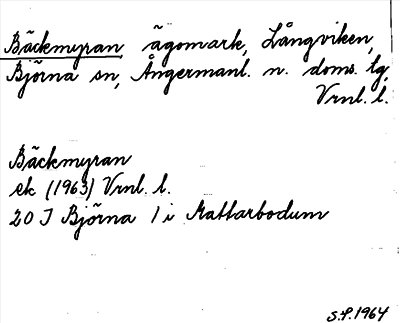 Bäckmyran ägomark, Långviken,
Björna sn, Ångermanl. n. doms. lg,
Vrnl. l.
Bäckmyran
ek (1963) Vrnl. l.
20 J Björna 1 i Mattarbodum
S.P. 1964